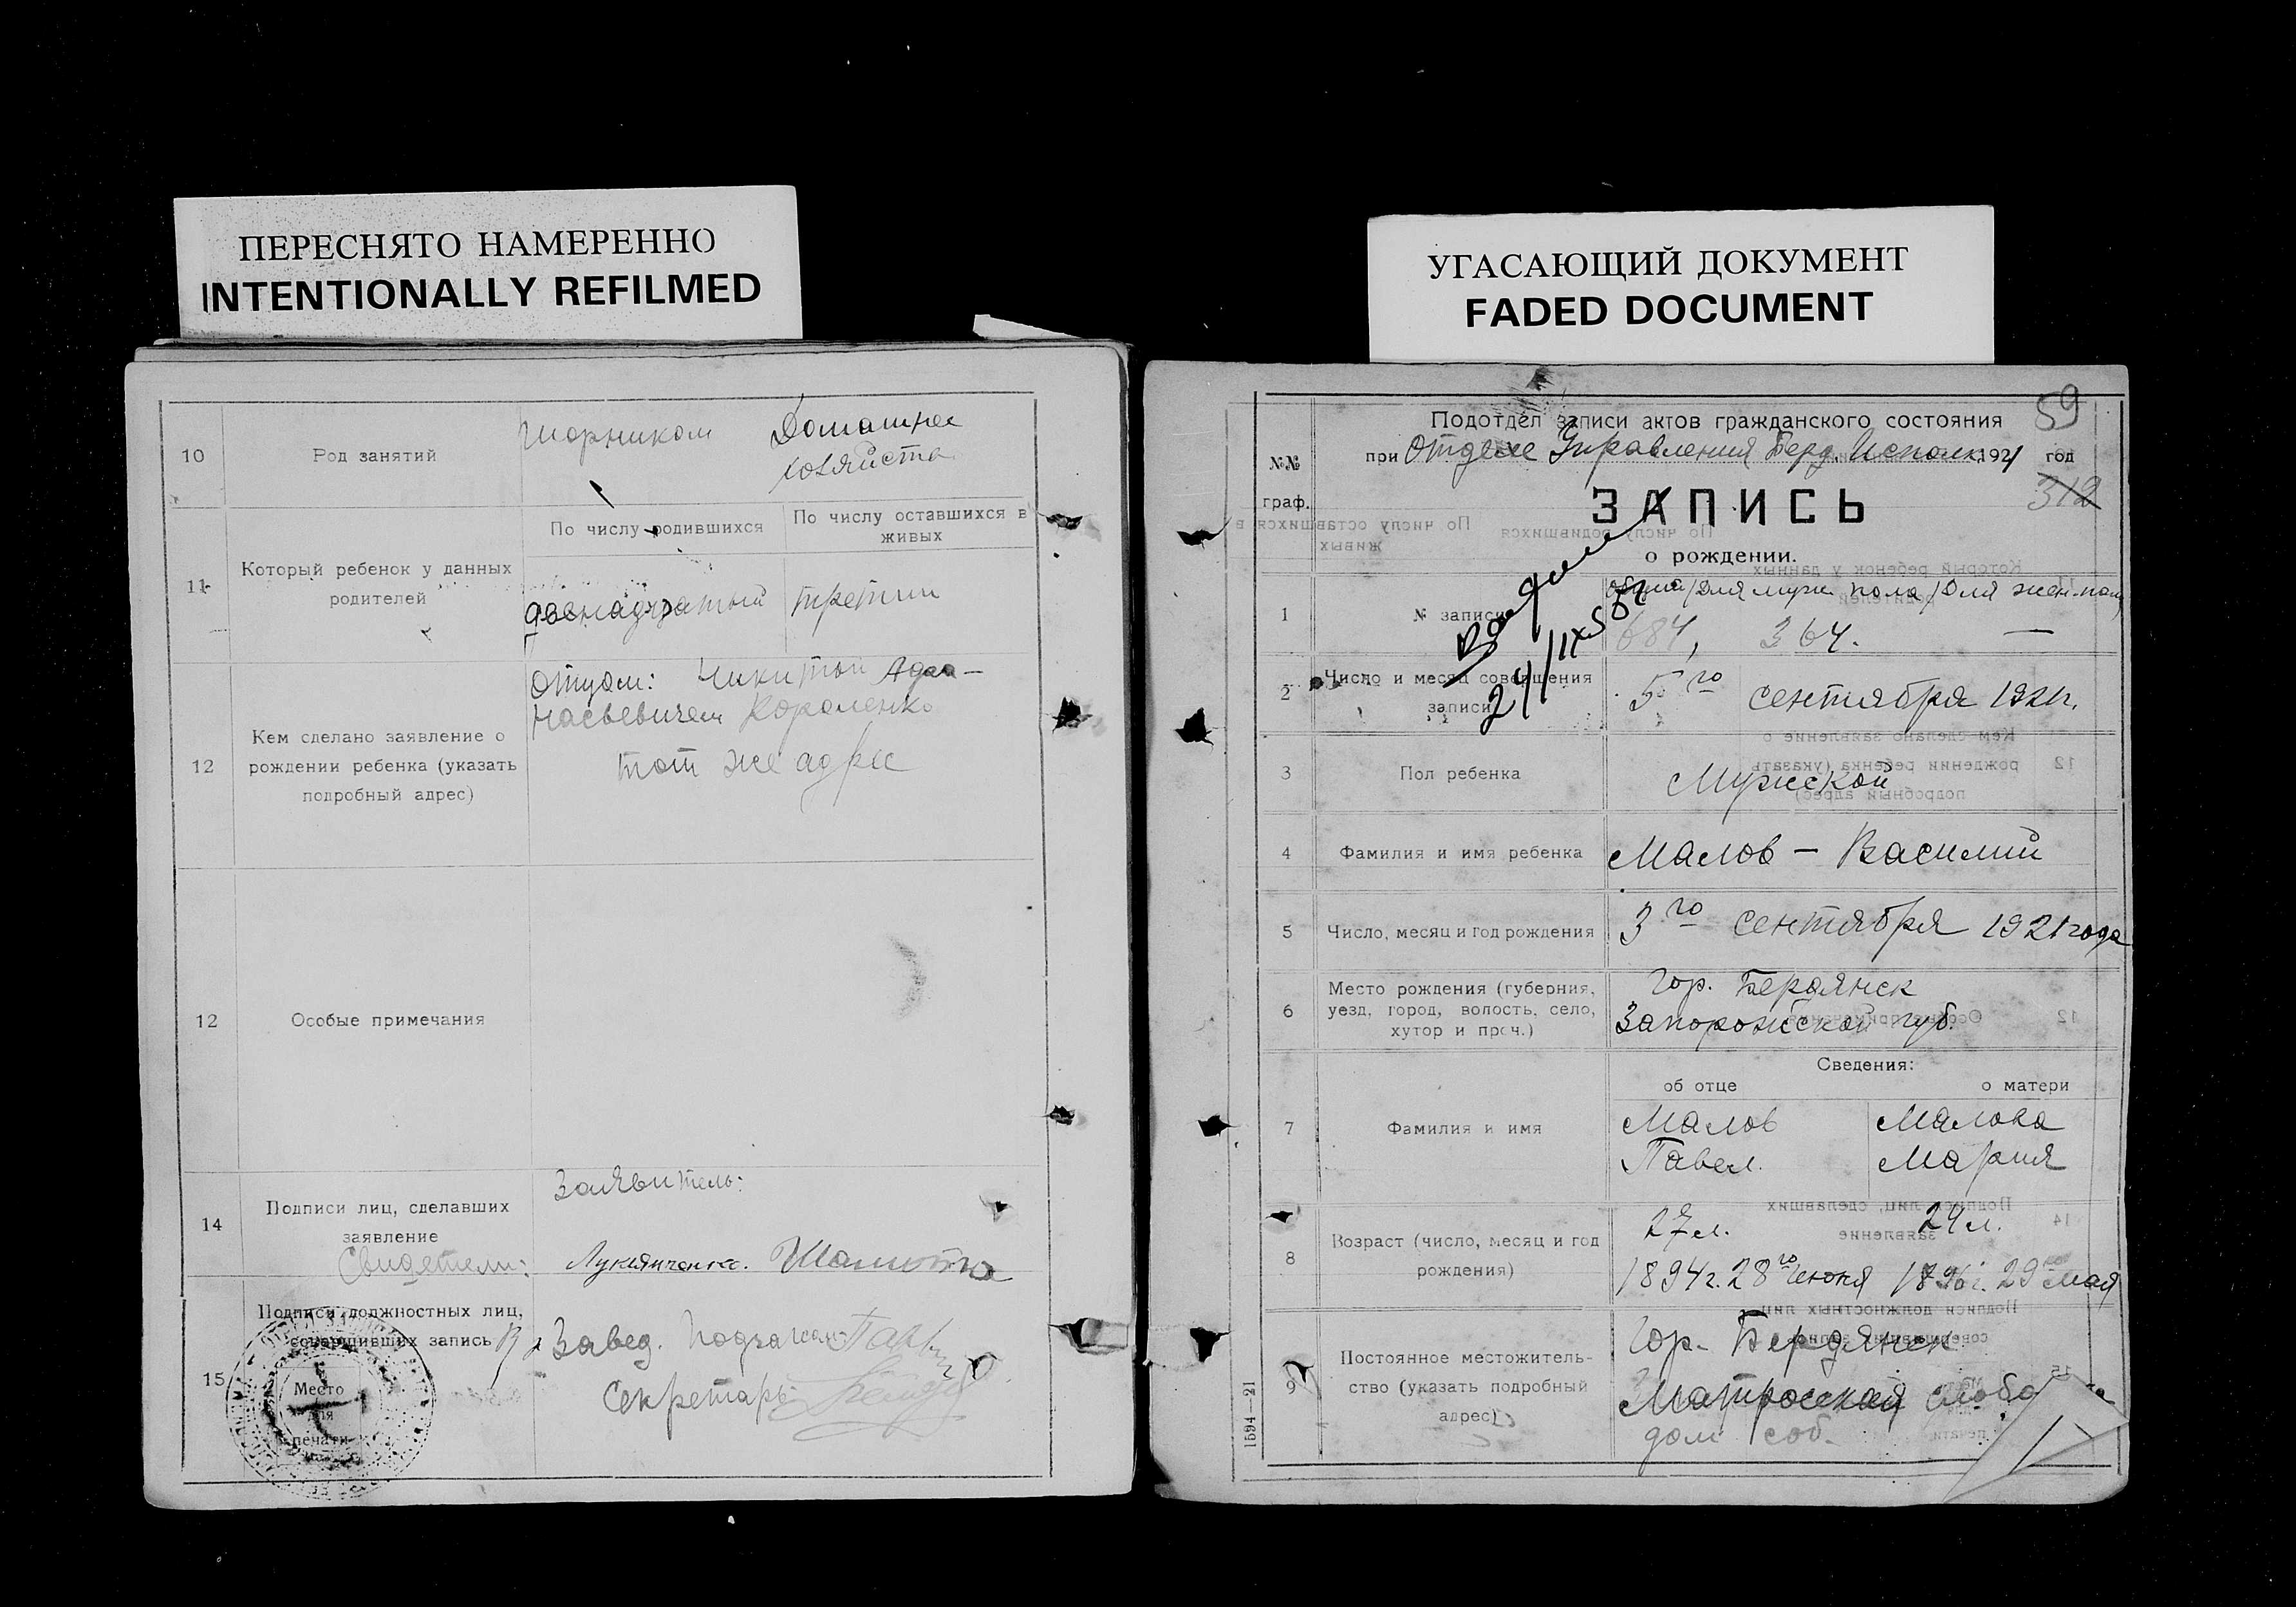 ПЕРЕСНЯТО НАМЕРЕННО
INTENTIONALLY REFILMED
10
Род занятий
Шорником
Домашнее
хозяйство
11
Который ребенок у данных
родителей
По числу родившихся
По числу оставшихся в
живых
двенадцатый
третий
12
Кем сделано заявление о
рождении ребенка (указать
подробный адрес)
Отцом: Никитой Афа-
насьевичем Короленко
тот же адрес
12
Особые примечания
14
Подписи лиц, сделавших
заявление
Свидетели:
Заявитель:
Лукьянченко. Шамота
15
Подписи должностных лиц,
совершивших запись
Место
для
печати
Завед. Подзагсом
Секретарь
УГАСАЮЩИЙ ДОКУМЕНТ
FADED DOCUMENT
59
Подотдел записи актов гражданского состояния
при Отделе Управления Берд. Исполк. 1921 год
312
№№
граф.
ЗАПИСЬ
о рождении.
1
№ записи
общий/для муж. пола/для жен. пола
684, 364. —
24/IX
2
Число и месяц совершения
записи
5го сентября 1921г.
3
Пол ребенка
Мужской
4
Фамилия и имя ребенка
Малов — Василий
5
Число, месяц и год рождения
3го сентября 1921 года
6
Место рождения (губерния,
уезд, город, волость, село,
хутор и проч.)
Гор. Бердянск
Запорожской губ.
Сведения:
об отце
о матери
7
Фамилия и имя
Малов
Павел.
Малова
Мария
8
Возраст (число, месяц и год
рождения)
27 л.
24 л.
1894 г. 28го июня
29го мая
9
Постоянное местожитель-
ство (указать подробный
адрес)
Гор. Бердянск
Матросская слобо
дом соб.
1594—21